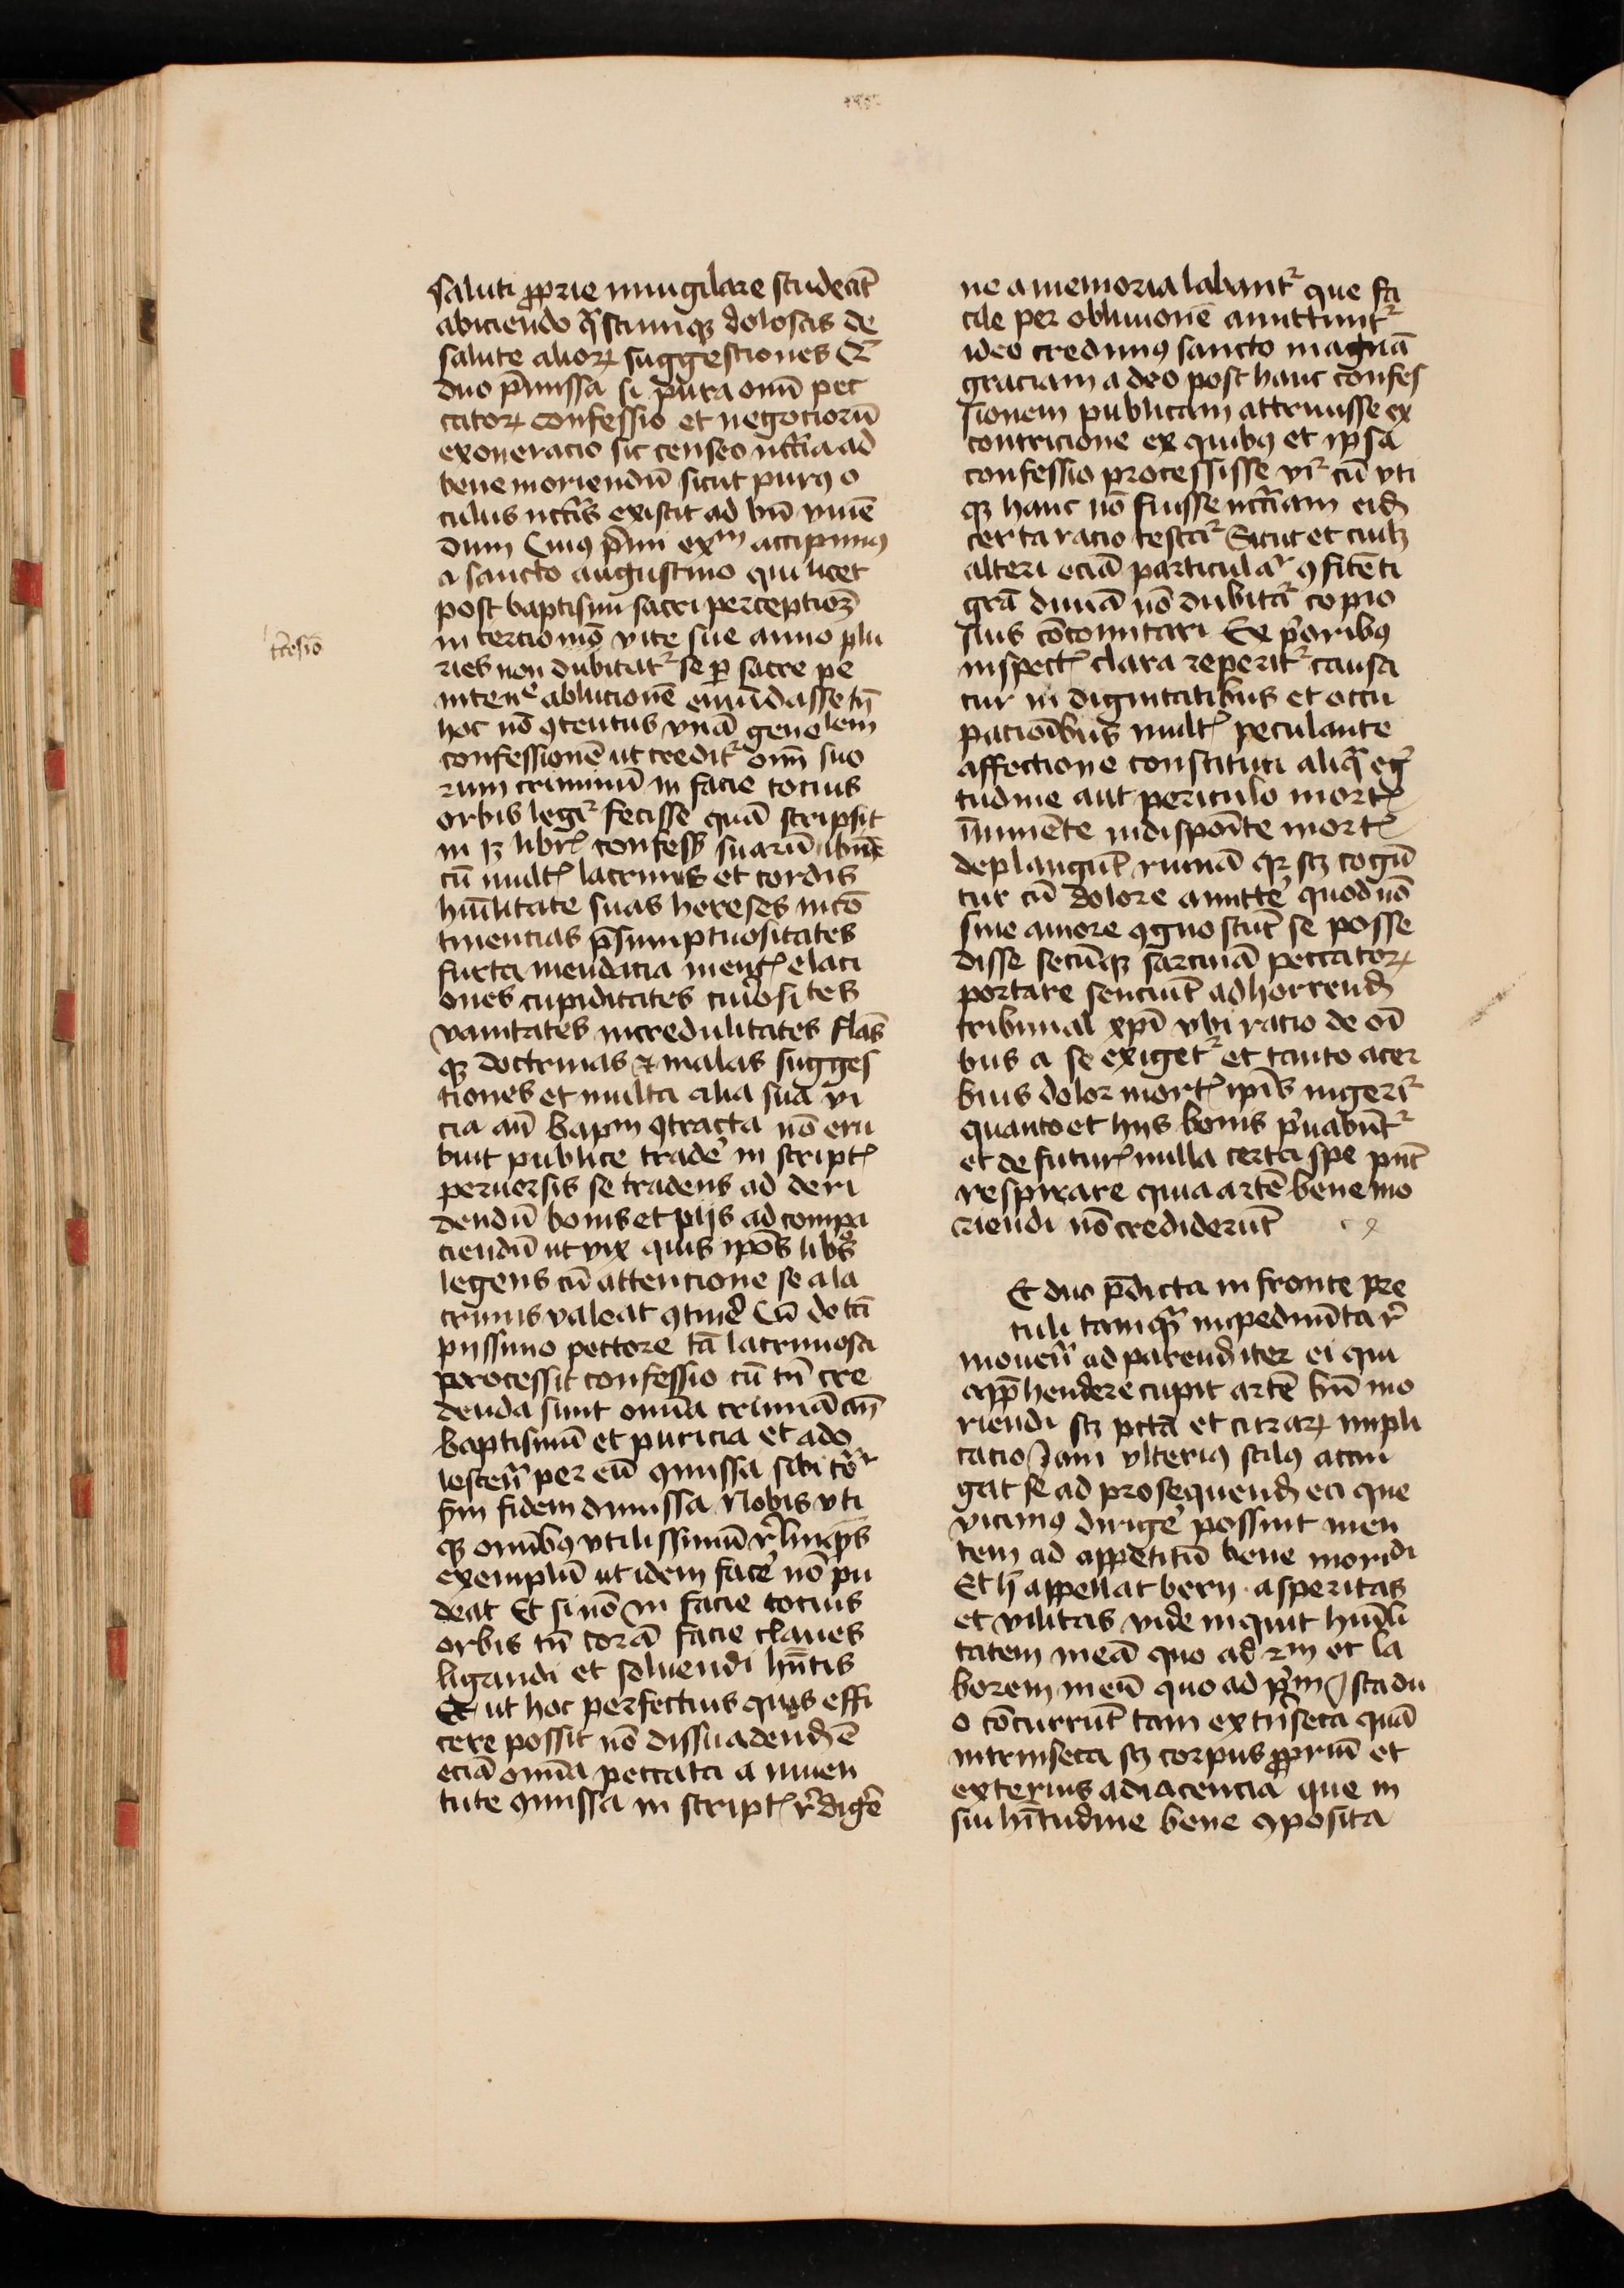 saluti proprie inuigilare studeat̄
abiciendo q̄stiunq̢ dolosas de
salute alioꝝ suggestiones Et
duo p̄missa si pura om̄ pec
catoꝝ confessio et negociorū
exoneracio sic censeo nccīa ad
bene moriendū sicut purꝰ o
culus nccīs existit ad bn̄ viuē
dum Cuiꝰ p̄mi exᵐ accipimꝰ
a sancto augustino qui licet
post baptismi sacri percepcioꝫ
in terciomo vite sue anno plu
ries non dubitat᷑ se ꝑ sacre pe
nitenᵉ ablucionē emūdasse tn̄
hoc nō ꝯtentus vnā genoₗₑₘ
confessionē ut credit᷑ om̄ suo
rum criminū in facie tocius
orbis legi᷑ fecisse quā scripsit
in libr̄ confess̄ suarū vbi
cū mult̄ lacrimis et cordis
hūilitate suas hereses incō
tinencias p̄sumptuositates
furta mendacia ment̄ elaci
ones cupiditates curiositᵉˢ
vanitates incredulitates flās
q̢ doctrinas ⁊ malas sugges
tiones et multa alia sua vi
cia an̄ bapᵐ ꝯtracta nō eru
buit publice trade᷑ in script̄
peruersis se tradens ad deri
dendū bonis et pijs ad compa
ciendū ut vix quis ip̄os libᵒˢ
legens cū attentione se a la
crimis valeat ꝯtine᷑ Cū de tā
pijssimo pectore tā lacrimosa
processit confessio cū tn̄ cre
denda sunt omīa crimīa an̄
baptismū et puricia et ado
lescen᷑ per eū ꝯmissa sibi
fidem dimissa Nobis vti
q̢ omībꝰ vtilissimū
exemplū ut idem face᷑ nō pu
deat Et si nō in facie tocius
orbis tn̄ corā facie claues
ligandi et soluendi hn̄tis
Et ut hoc perfectius quis effi
cere possit nō dissuadend̄ ē
eciā omīa peccata a iuuen
tute ꝯmissa in script̄ r᷑dige᷑
tc̄esio
ne a memoria labant᷑ que fa
cile per obliuionē amittunt᷑
ideo credimꝰ sancto magnā
graciam a deo post hanc confes
sionem publicam attraxisse ex
contricione ex quibꝰ et ipsa
confessio processisse vi᷑ cū vti
q̢ hanc nō fuisse nccīam eid̄
certa racio testat᷑ Sicut et cuilꝫ
alteri eciā particula᷑ ꝯfitēti
grā diuinā nō dubita᷑ copio
sius cōcomitari Ex p̄oribꝰ
inspect̄ clara reperit᷑ causa
cur in dignitatibus et occu
pacioībus mult̄ peculante
affectione constituti aliq̄ eg᷑
tudine aut periculo mort̄
īminēte indispoīte mort̄
deplangūt ruinā qꝛ sꝫ cogū
tur cū dolore amitte᷑ quod nō
sine amore ꝯgnoscūt se posse
disse secūq̢ sarcinā peccatoꝝ
portare senciūt ad horrend̄
tribunal xp̄i vbi racio de oī
bus a se exiget᷑ et tanto acer
bius dolor mort̄ ip̄is ingeri᷑
quanto et hijs bonis p᷑uabūt᷑
et de futur̄ nulla certa spe p̄nt
respirare quia artē bene mo
riendi nō crediderūt

Et duo p̄dicta in fronte pre
tuli tamq̄ impedimīta
mouen᷑ ad parend̄ iter ei qui
app̄hendere cupit artē bn̄ mo
riendi sꝫ pctā et curaꝝ impli
cacio Jam vlteriꝰ stilꝰ accin
gat se ad prosequend̄ ea que
vicinꝰ dirige᷑ possint men
tem ad appetitū bene moriᵈⁱ
Et h̄ appellat bern̄ asperitas
et vilitas vide inquit hūili
tatem meā quo ad 2ᵐ et la
borem meū quo ad p᷑m Ista du
o cōcurrūt tam extrīseca quā
intrinseca sꝫ corpus propriū et
exterius adiacencia que in
sui hītudine bene ꝯposita